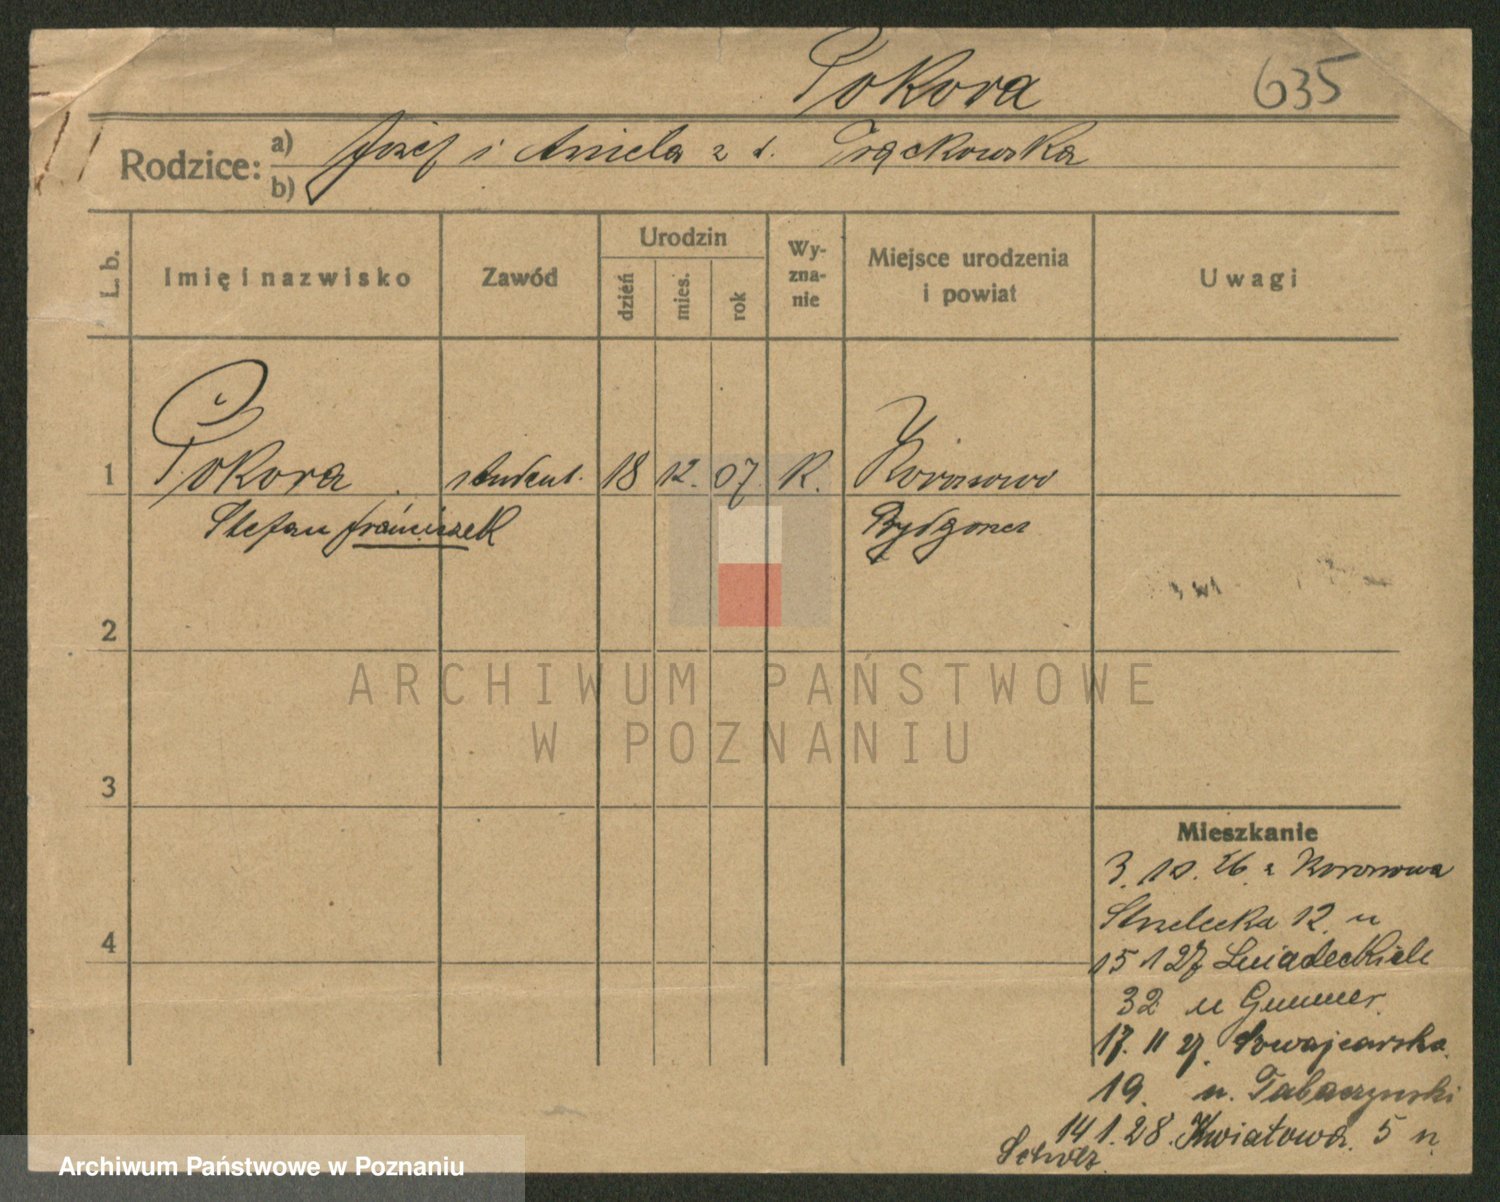 Pokora 635
Rodzice: a) Józef i Aniela z d. Trąckowska
b)
L. b. Imię i nazwisko Zawód Urodzin dzień mies. rok Wy-zna-nie Miejsce urodzenia i powiat Uwagi
1 Pokora student 18 12. 07. K. Koronowo
Stefan Franciszek Bydgoszcz
2
ARCHIWUM PAŃSTWOWE
W POZNANIU
3
Mieszkanie
3. 10. 26. z Koronowa
Strzelecka 12. u
4
15 1 27 Śniadeckich
32 u Gummer.
17. II 27. Szwajcarska
19. u. Tabaczynski
14 1. 28. Kwiatowa 5 u
Scholz.
Archiwum Państwowe w Poznaniu